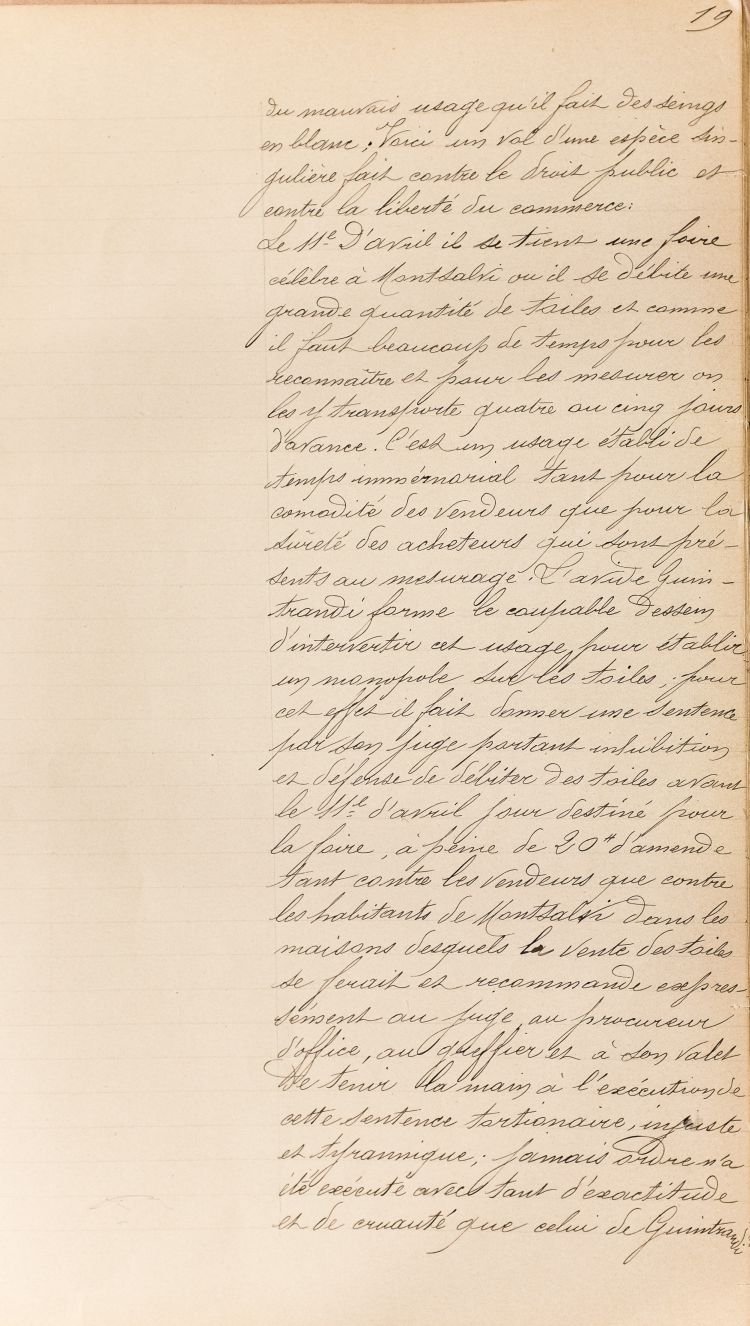 19
du mauvais usage qu'il fait des seings
en blanc. Voici un vol d'une espèce sin-
gulière fait contre le droit public et
contre la liberté du commerce:
Le 11e D'avril il se tient une foire
célèbre à Montsalvi ou il se débite une
grande quantité de toiles et comme
il faut beaucoup de temps pour les
reconnaître et pour les mesurer on
les y transporte quatre ou cinq jours
d'avance. C'est un usage établi de
temps immémorial tant pour la
comodité des vendeurs que pour la
sûreté des acheteurs qui sont pré-
sents au mesurage. L'avide Guin-
trandi forme le coupable dessein
d'intervertir cet usage, pour établir
un monopole sur les toiles, pour
cet effet il fait donner une sentence
par son juge portant inhibition
et défense de débiter des toiles avant
le 11e d'avril jour destiné pour
la foire, à peine de 20# d'amende
tant contre les vendeurs que contre
les habitants de Montsalvi dans les
maisons desquels la vente des toiles
se ferait et recommande expres-
sément au juge, au procureur
d'office, au greffier et à son valet
De tenir la main à l'exécution de
cette sentence tortionaire, injuste
et tyrannique; jamais ordre n'a
été exécuté avec tant d'exactitude
et de cruauté que celui de Guintrandi